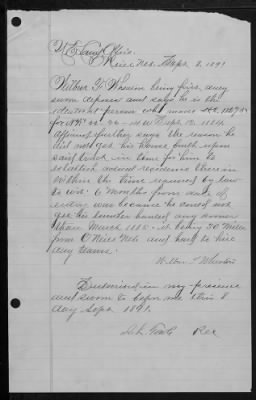 U.S. Land Office,
Neill Neb. Sept. 8, 1891
Wilber F. Wheeton being first duly
sworn deposes and says he is the
identical person who made H.E.
for NW 22 - 26 - 14 W Sept. 12, 1884
affiant further says the reason he
did not get his house built upon
said tract in time for him to
establish actual residence there in
within the time required by law
to wit: 6 months from date of
entry was because he could not
get his lumber hauled any sooner
than March 1885. it being 30 miles
from O'Neill Neb and had to hire
any teams.
Wilber F Wheeton
Subscribed in my presence
and sworn to before me this 8
day Sept. 1891.
Rec